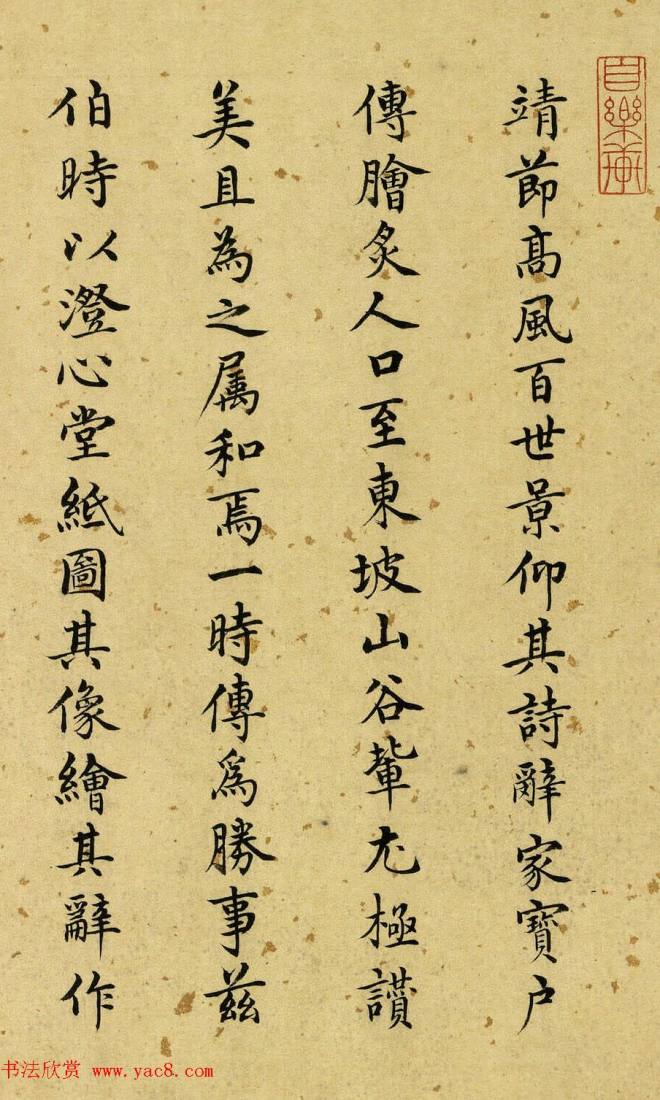 自樂軒
靖節髙風百世景仰其詩辭家寶户
傳膾炙人口至東坡山谷輩尤極讃
美且為之属和焉一時傳為勝事兹
伯時以澄心堂紙圖其像繪其辭作
书法欣赏 www.yac8.com